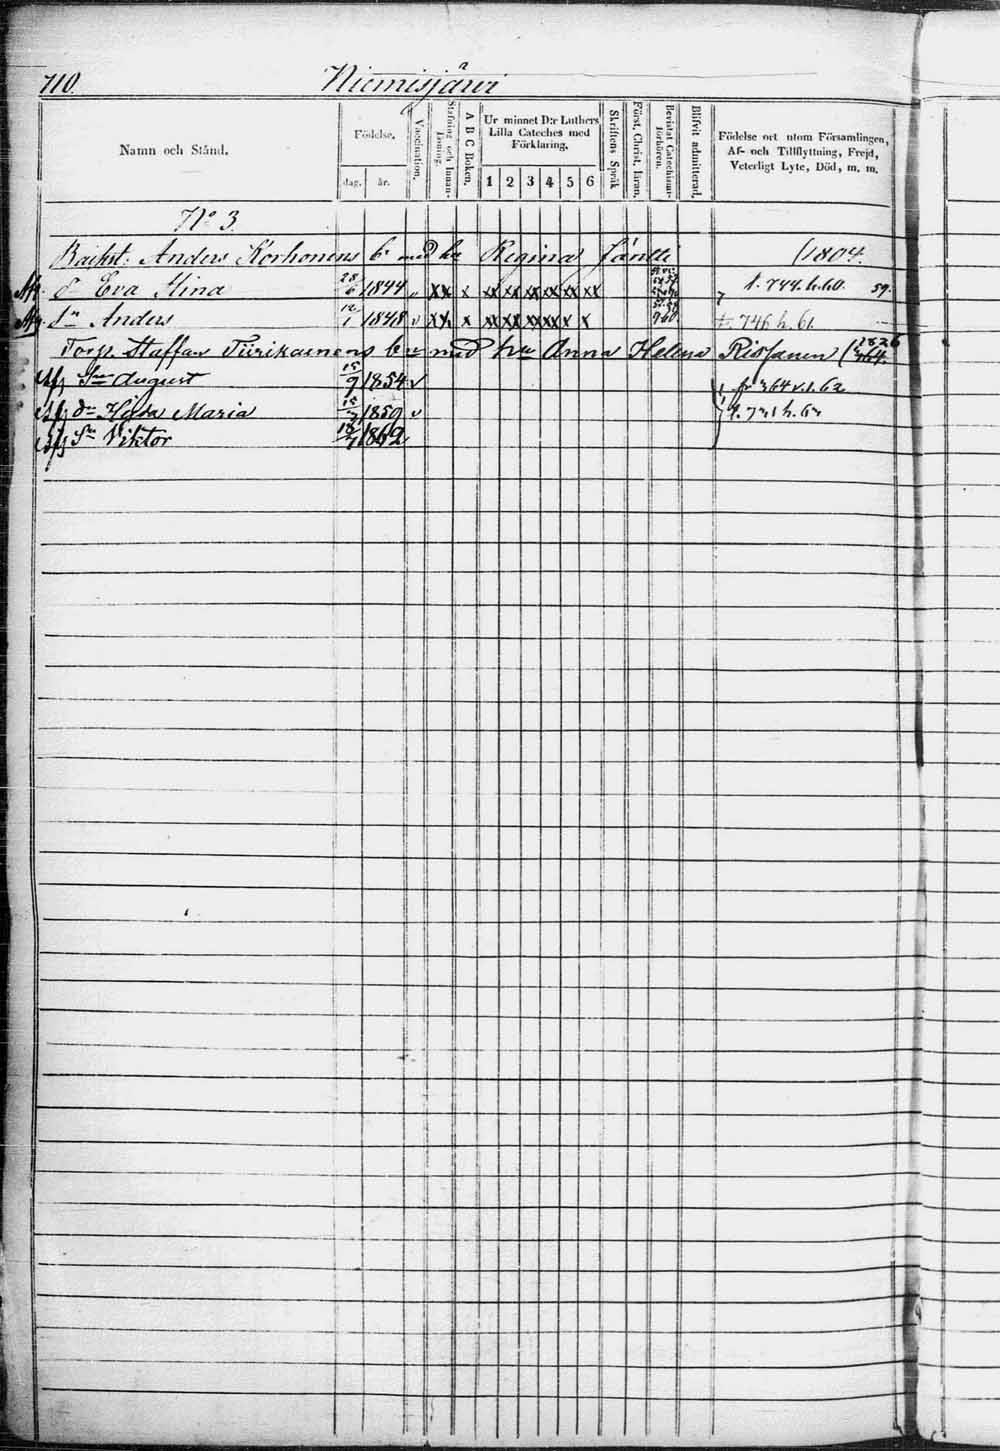 710.
Niemisjärvi
Namn och Stånd.
Födelse.
dag.
år.
Vaccination.
Stafning och Innan-
läsning.
A B C Boken.
Ur minnet D:r Luthers
Lilla Cateches med
Förklaring.
1 2 3 4 5 6
Skriftens Språk
Först. Christ. läran.
Bevistat Catechismi-
förhören.
Blifvit admitterad.
Födelse ort utom Församlingen,
Af- och Tillflyttning, Frejd,
Veterligt Lyte, Död, m. m.
No 3
Anders Korhonens bn med hu Regina Jäntti (1804.
d Eva Stina 28/6 1844 v xx x xx xx xx xx xx xx 1. 744. h. 60. 59.
Sn Anders 12/1 1848 v x x xx xx xx xx x x 960. 746 h. 61.
Torp. Staffan Tiirikainens bn med hu Anna Helena Rissanen (1826
Sn August 15/9 1854 v fr 364 v. 1. 62
dr Maria 1859 v
Sn Viktor 1862